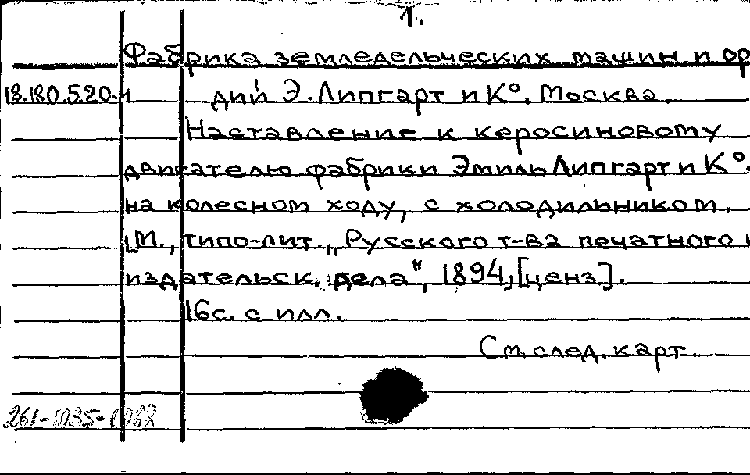 1.
Фабрика земледельческих машин и ор
18.180.5.20.-1 дий Э. Липгарт и К°. Москва.
Наставление к керосиновому
двигателю фабрики Эмиль Липгарт и К°.
на колесном ходу, с холодильником.
М., типо-лит. „Русского т-ва печатного и
издательск. дела", 1894, [ценз].
16с. с илл.
См. след. карт.